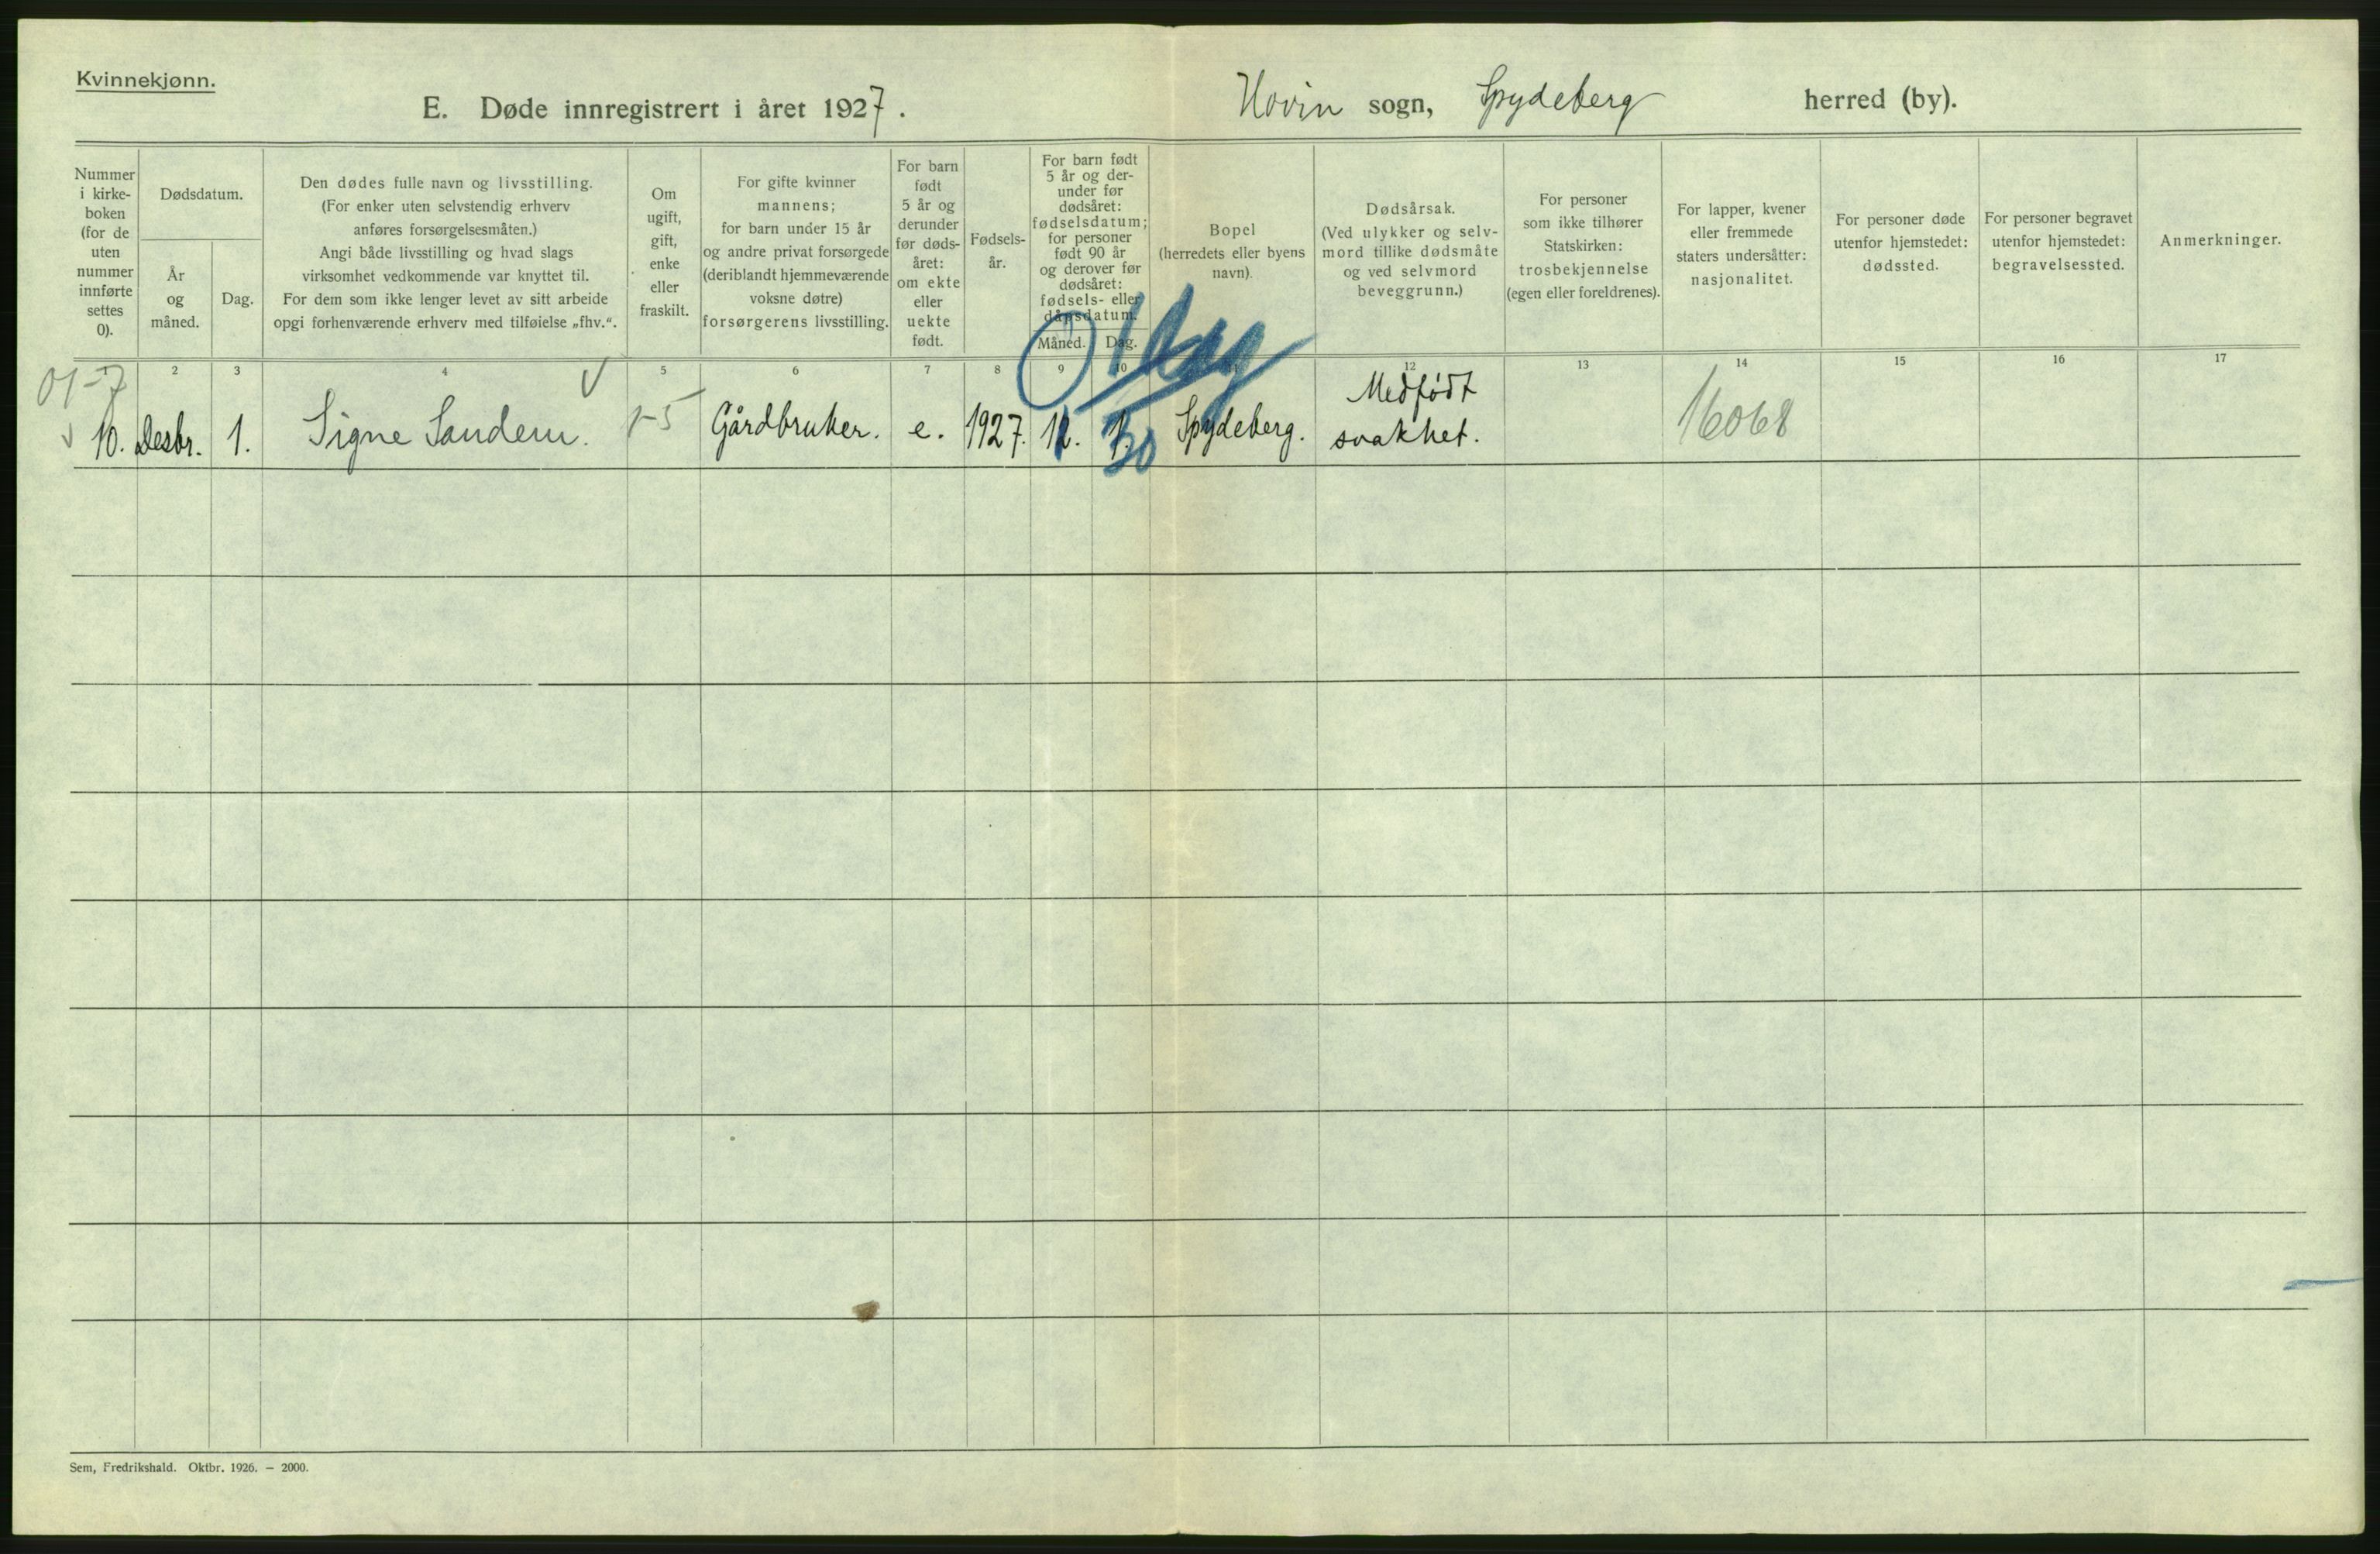 Kvinnekjønn.
E. Døde innregistrert i året 1927.
Hovin sogn, Spydeberg herred (by).
Nummer
i kirke-
boken
(for de
uten
nummer
innførte
settes
0).
Dødsdatum.
År
og
måned.
Dag.
Den dødes fulle navn og livsstilling.
(For enker uten selvstendig erhverv
anføres forsørgelsesmåten.)
Angi både livsstilling og hvad slags
virksomhet vedkommende var knyttet til.
For dem som ikke lenger levet av sitt arbeide
opgi forhenværende erhverv med tilføielse „fhv.“.
Om
ugift,
gift,
enke
eller
fraskilt.
For gifte kvinner
mannens;
for barn under 15 år
og andre privat forsørgede
(deriblandt hjemmeværende
voksne døtre)
forsørgerens livsstilling.
For barn
født
5 år og
derunder
før døds-
året:
om ekte
eller
uekte
født.
Fødsels-
år.
For barn født
5 år og der-
under før
dødsåret:
fødselsdatum;
for personer
født 90 år
og derover før
dødsåret:
fødsels- eller
dåpsdatum.
Måned. Dag.
Bopel
(herredets eller byens
navn).
Dødsårsak.
(Ved ulykker og selv-
mord tillike dødsmåte
og ved selvmord
beveggrunn.)
For personer
som ikke tilhører
Statskirken:
trosbekjennelse
(egen eller foreldrenes).
For lapper, kvener
eller fremmede
staters undersåtter:
nasjonalitet.
For personer døde
utenfor hjemstedet:
dødssted.
For personer begravet
utenfor hjemstedet:
begravelsessted.
Anmerkninger.
1 2 3 4 5 6 7 8 9 10 11 12 13 14 15 16 17
01-7
0 1 dag
10. Desbr. 1. Signe Sandem. 1-5 Gårdbruker. e. 1927. 12. 1. Spydeberg. Medfødt
svakhet. 16068
30
Sem, Fredrikshald. Oktbr. 1926. — 2000.